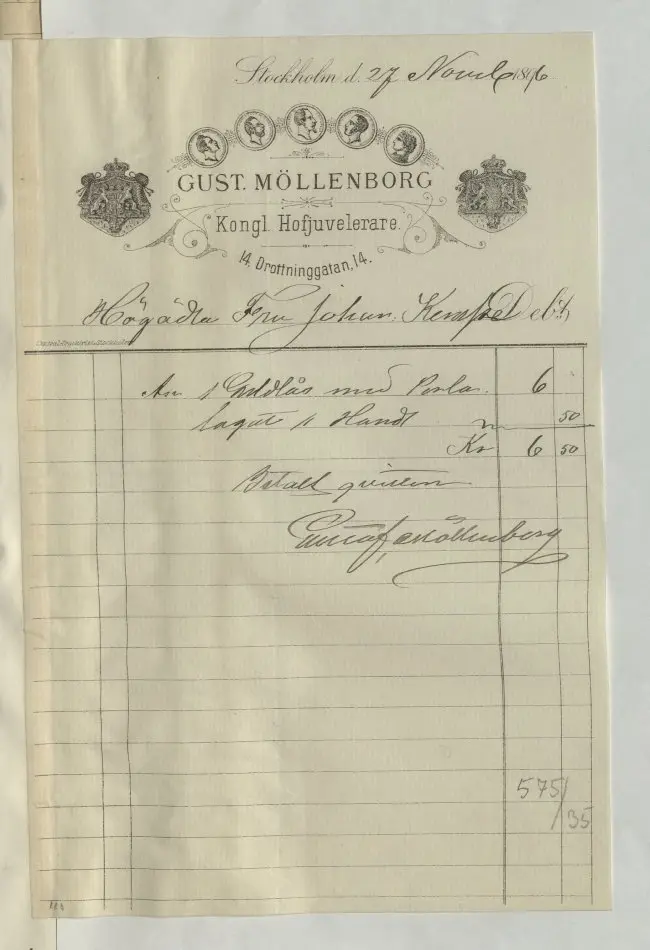 Stockholm d. 27 Novb 1896
GUST. MÖLLENBORG
Kongl. Hofjuvelerare.
14, Drottninggatan, 14.
Högädla Fru Johan: Kempe Debet,
Central-Tryckeriet, Stockholm
An 1 Guldlås med Perla. 6
lagat 1 Handt " 50
Kr 6 50
Betalt qvitteras
Gustaf Möllenborg
575/
35